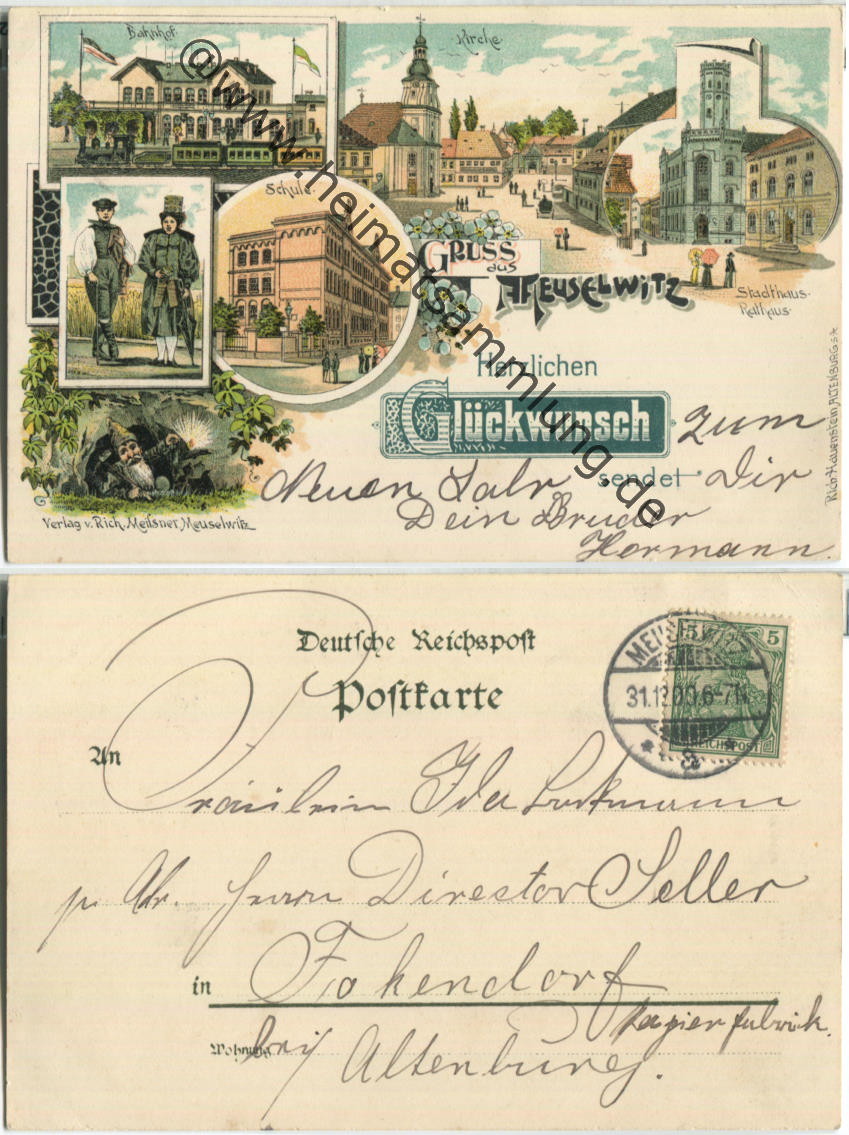 Bahnhof.
Kirche.
Schule.
Gruss
aus
Meuselwitz
Stadthaus.
Rathaus.
Herzlichen
Glückwunsch zum
Neuen Jahr sendet Dir
Dein Bruder
Hermann.
Verlag v. Rich. Meissner, Meuselwitz
Rich. Hauenstein, ALTENBURG S.A.
@www.heimatsammlung.de
Deutsche Reichspost
Postkarte
MEUSELWITZ
31.12.00.6-7N.
5 5
REICHSPOST
An
Fräulein Ida
p. Adr. Herrn Director Seller
in Fokendorf
Papierfabrik.
Wohnung bei
Altenburg.